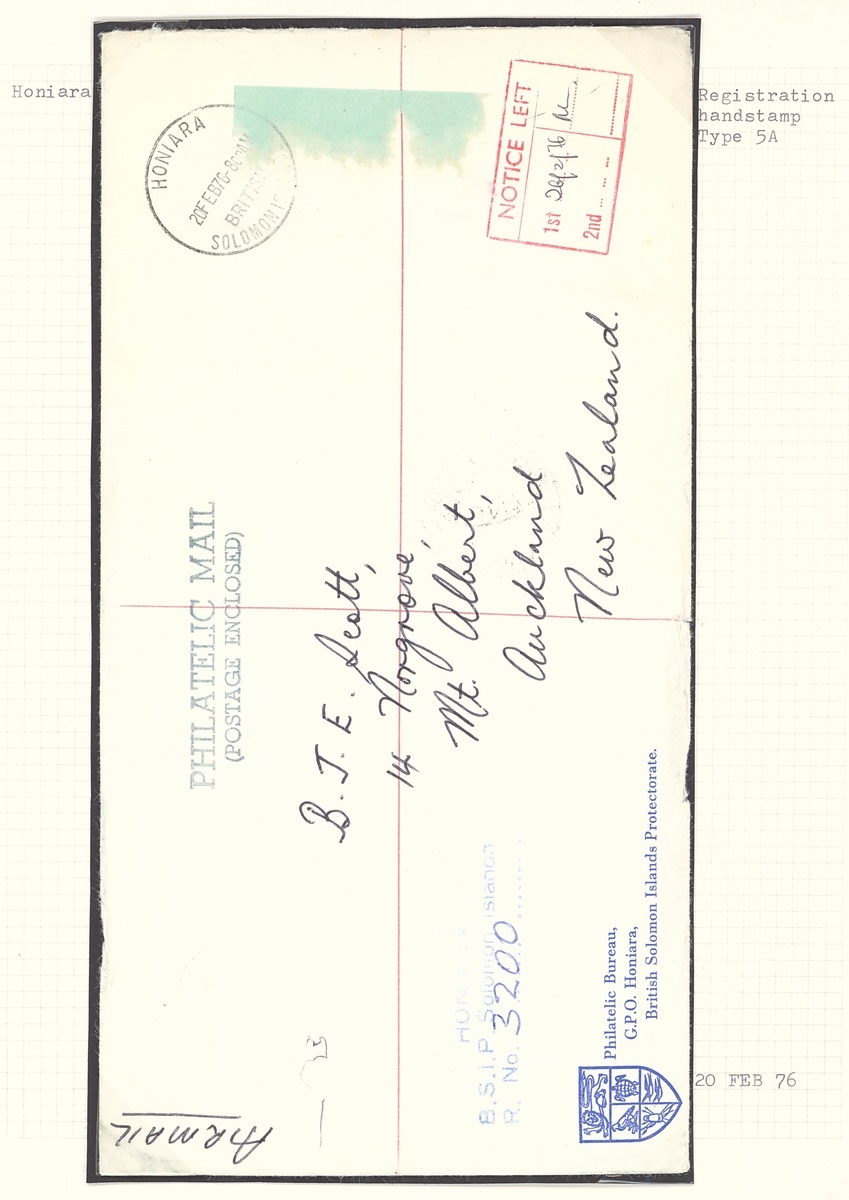 Honiara
Registration
handstamp
Type 5A
HONIARA
20FEB76-8
BRITISH
SOLOMON IS
NOTICE LEFT
1st 26/2/76
2nd
PHILATELIC MAIL
(POSTAGE ENCLOSED)
B. J. E. Scott,
14 Norgrove,
Mt. Albert,
Auckland
New Zealand.
HONIARA
B.S.I.P. Solomon Islands
R. No. 3200
Philatelic Bureau,
G.P.O. Honiara,
British Solomon Islands Protectorate.
AIRMAIL
20 FEB 76